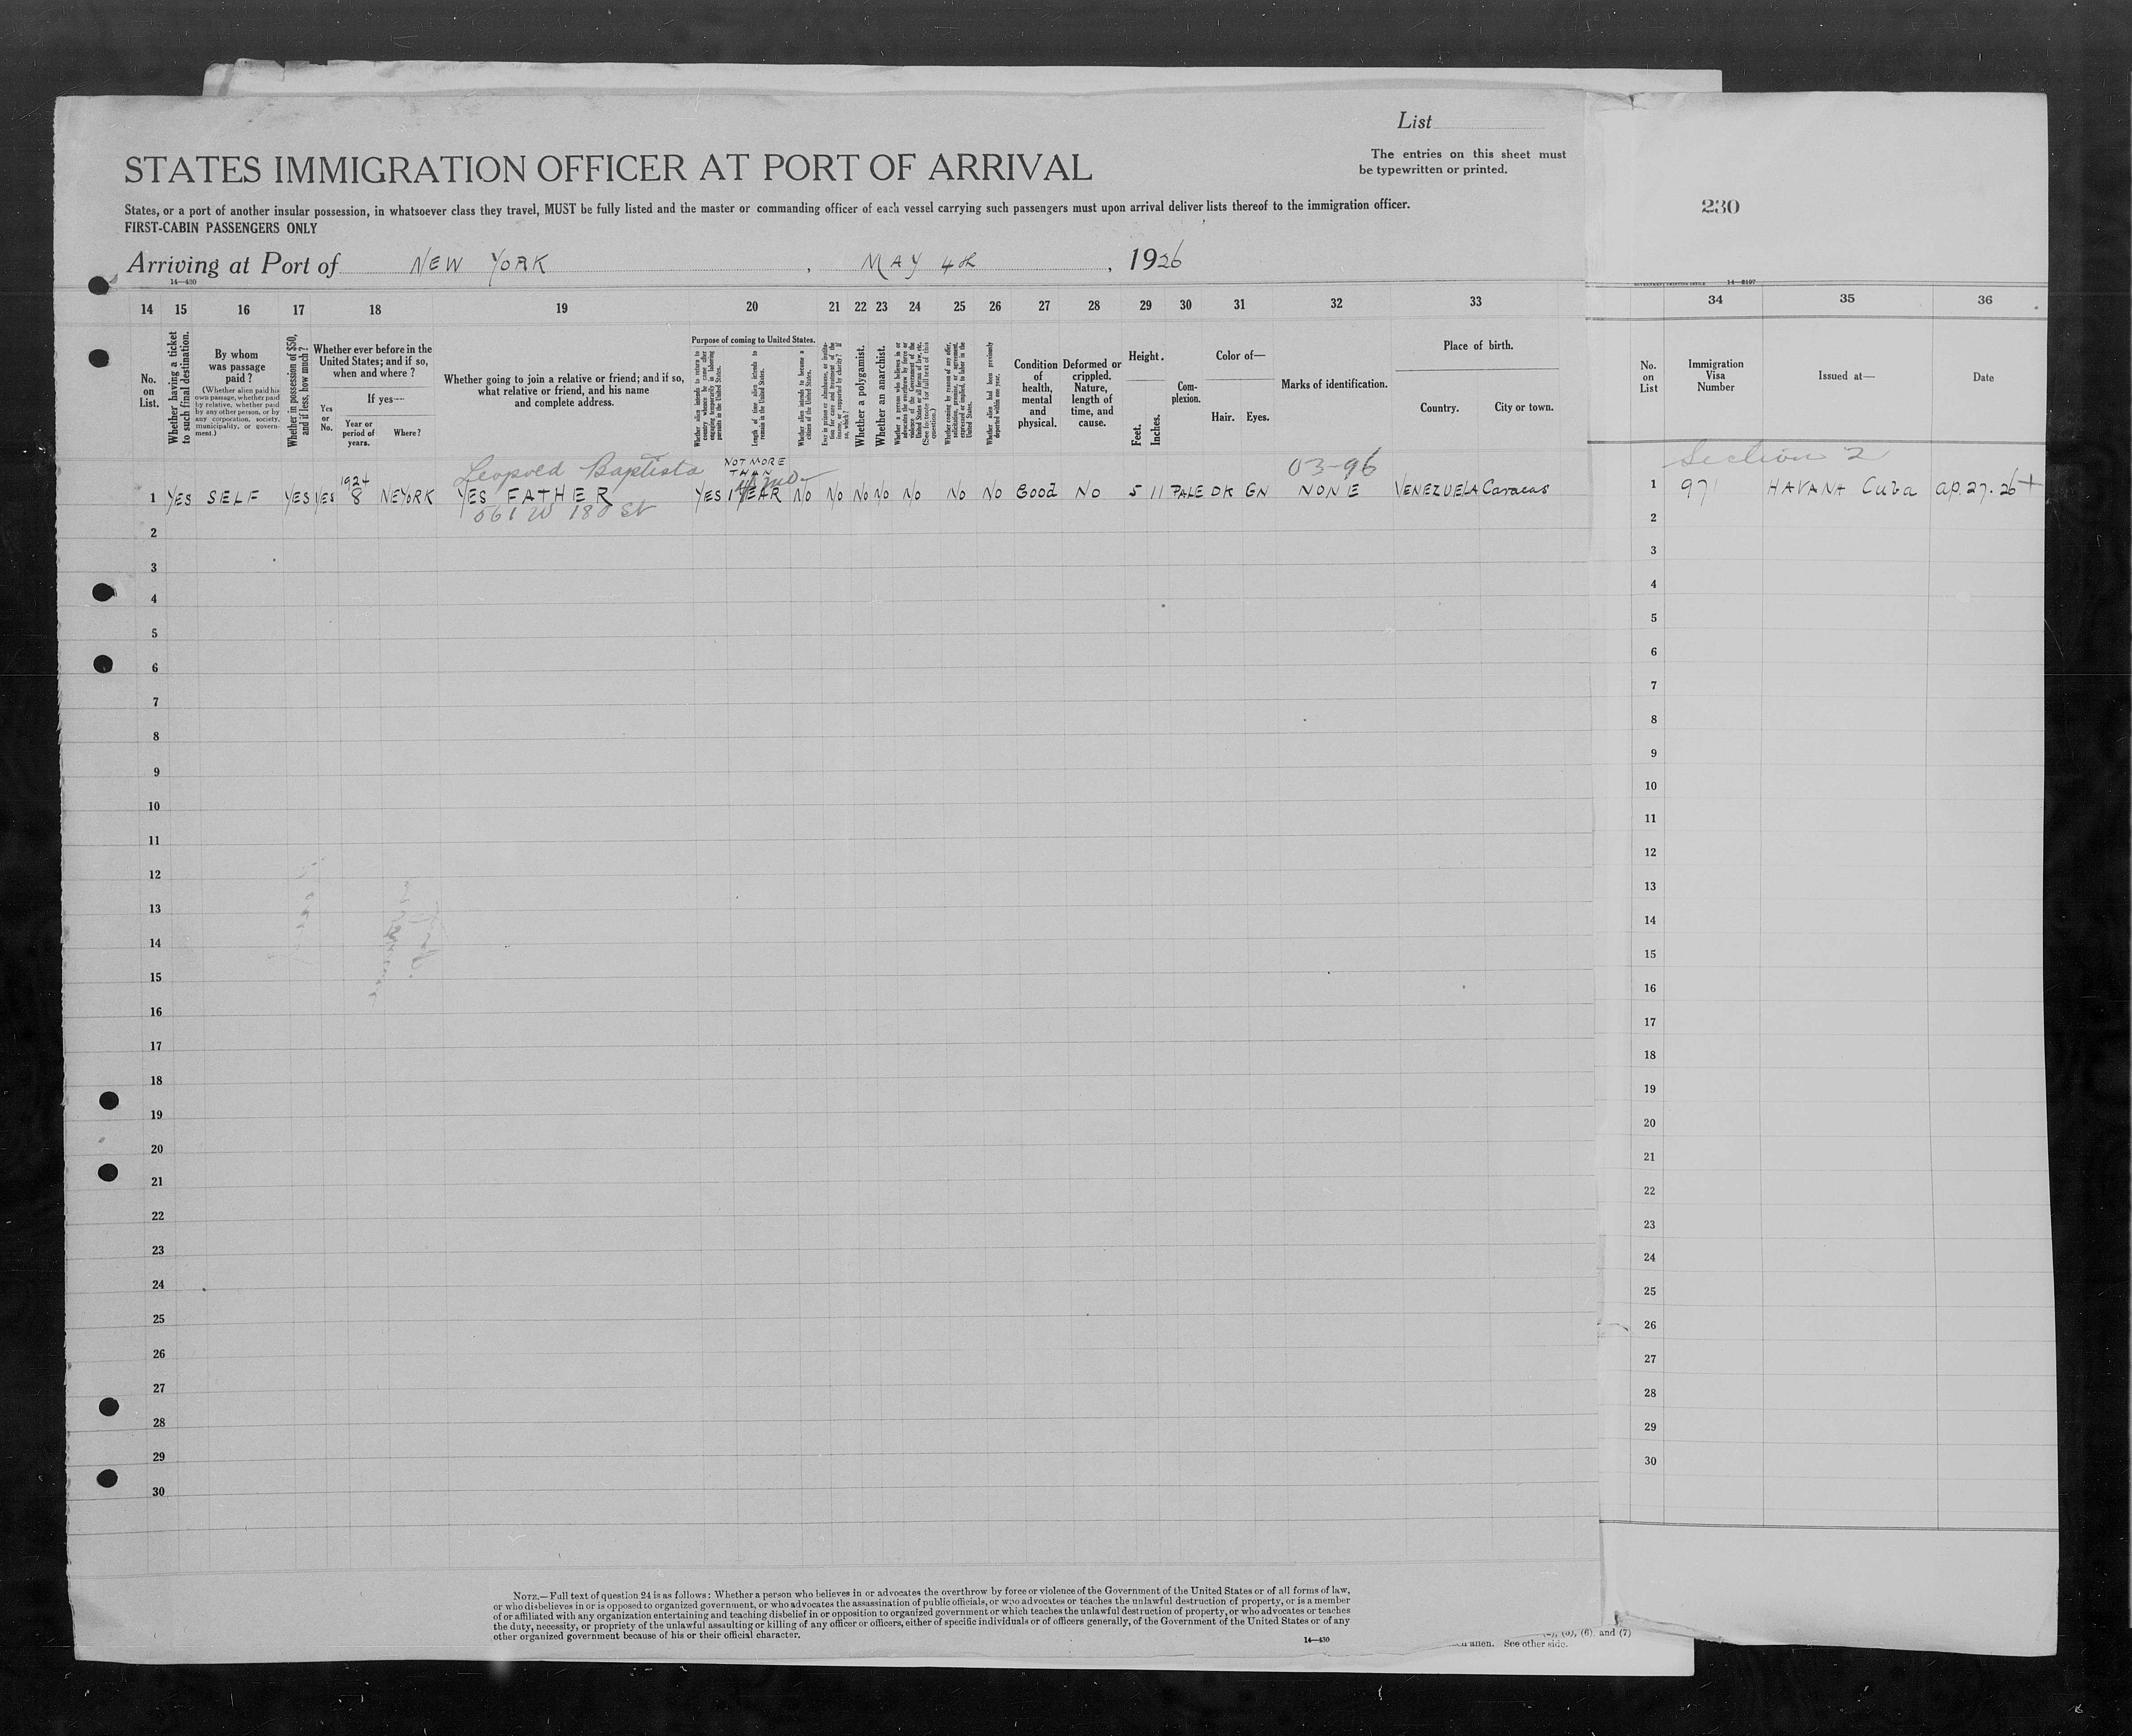 List
STATES IMMIGRATION OFFICER AT PORT OF ARRIVAL
The entries on this sheet must
be typewritten or printed.
States, or a port of another insular possession, in whatsoever class they travel, MUST be fully listed and the master or commanding officer of each vessel carrying such passengers must upon arrival deliver lists thereof to the immigration officer.
FIRST-CABIN PASSENGERS ONLY
230
Arriving at Port of NEW YORK, MAY 4th, 1926
14—430
14 15 16 17 18 19 20 21 22 23 24 25 26 27 28 29 30 31 32 33
No. on List.
Whether having a ticket to such final destination.
By whom was passage paid?
(Whether alien paid his own passage, whether paid by relative, whether paid by any other person, or by any corporation, society, municipality, or government.)
Whether in possession of $50, and if less, how much?
Whether ever before in the United States; and if so, when and where?
Yes or No.
If yes—
Year or period of years.
Where?
Whether going to join a relative or friend; and if so, what relative or friend, and his name and complete address.
Purpose of coming to United States.
Whether alien intends to return to country whence he came after engaging temporarily in laboring pursuits in the United States.
Length of time alien intends to remain in the United States.
Whether alien intends to become a citizen of the United States.
Ever in prison or almshouse, or institution for care and treatment of the insane, or supported by charity? If so, which?
Whether a polygamist.
Whether an anarchist.
Whether a person who believes in or advocates the overthrow by force or violence of the Government of the United States or all forms of law, etc. (See footnote for full text of this question.)
Whether coming by reason of any offer, solicitation, promise, or agreement, expressed or implied, to labor in the United States.
Whether alien had been previously deported within one year.
Condition of health, mental and physical.
Deformed or crippled. Nature, length of time, and cause.
Height.
Feet. Inches.
Complexion.
Color of—
Hair. Eyes.
Marks of identification.
Place of birth.
Country. City or town.
14—8197
34 35 36
No. on List
Immigration Visa Number
Issued at—
Date
Leopold Baptista
NOT MORE
THAN
03-96
Section 2
1924
1 YES SELF YES YES 8 NEYORK YES FATHER YES 1 YEAR NO NO NO NO NO NO NO Good NO 5 11 PALE DK GN NONE VENEZUELA Caracas
561 W 180 St
1 971 HAVANA Cuba ap. 27. 26 +
2
3
4
5
6
7
8
9
10
11
12
13
14
15
16
17
18
19
20
21
22
23
24
25
26
27
28
29
30
2
3
4
5
6
7
8
9
10
11
12
13
14
15
16
17
18
19
20
21
22
23
24
25
26
27
28
29
30
NOTE.—Full text of question 24 is as follows: Whether a person who believes in or advocates the overthrow by force or violence of the Government of the United States or of all forms of law,
or who disbelieves in or is opposed to organized government, or who advocates the assassination of public officials, or who advocates or teaches the unlawful destruction of property, or is a member
of or affiliated with any organization entertaining and teaching disbelief in or opposition to organized government or which teaches the unlawful destruction of property, or who advocates or teaches
the duty, necessity, or propriety of the unlawful assaulting or killing of any officer or officers, either of specific individuals or of officers generally, of the Government of the United States or of any
other organized government because of his or their official character.
14—430
(6), and (7)
alien. See other side.